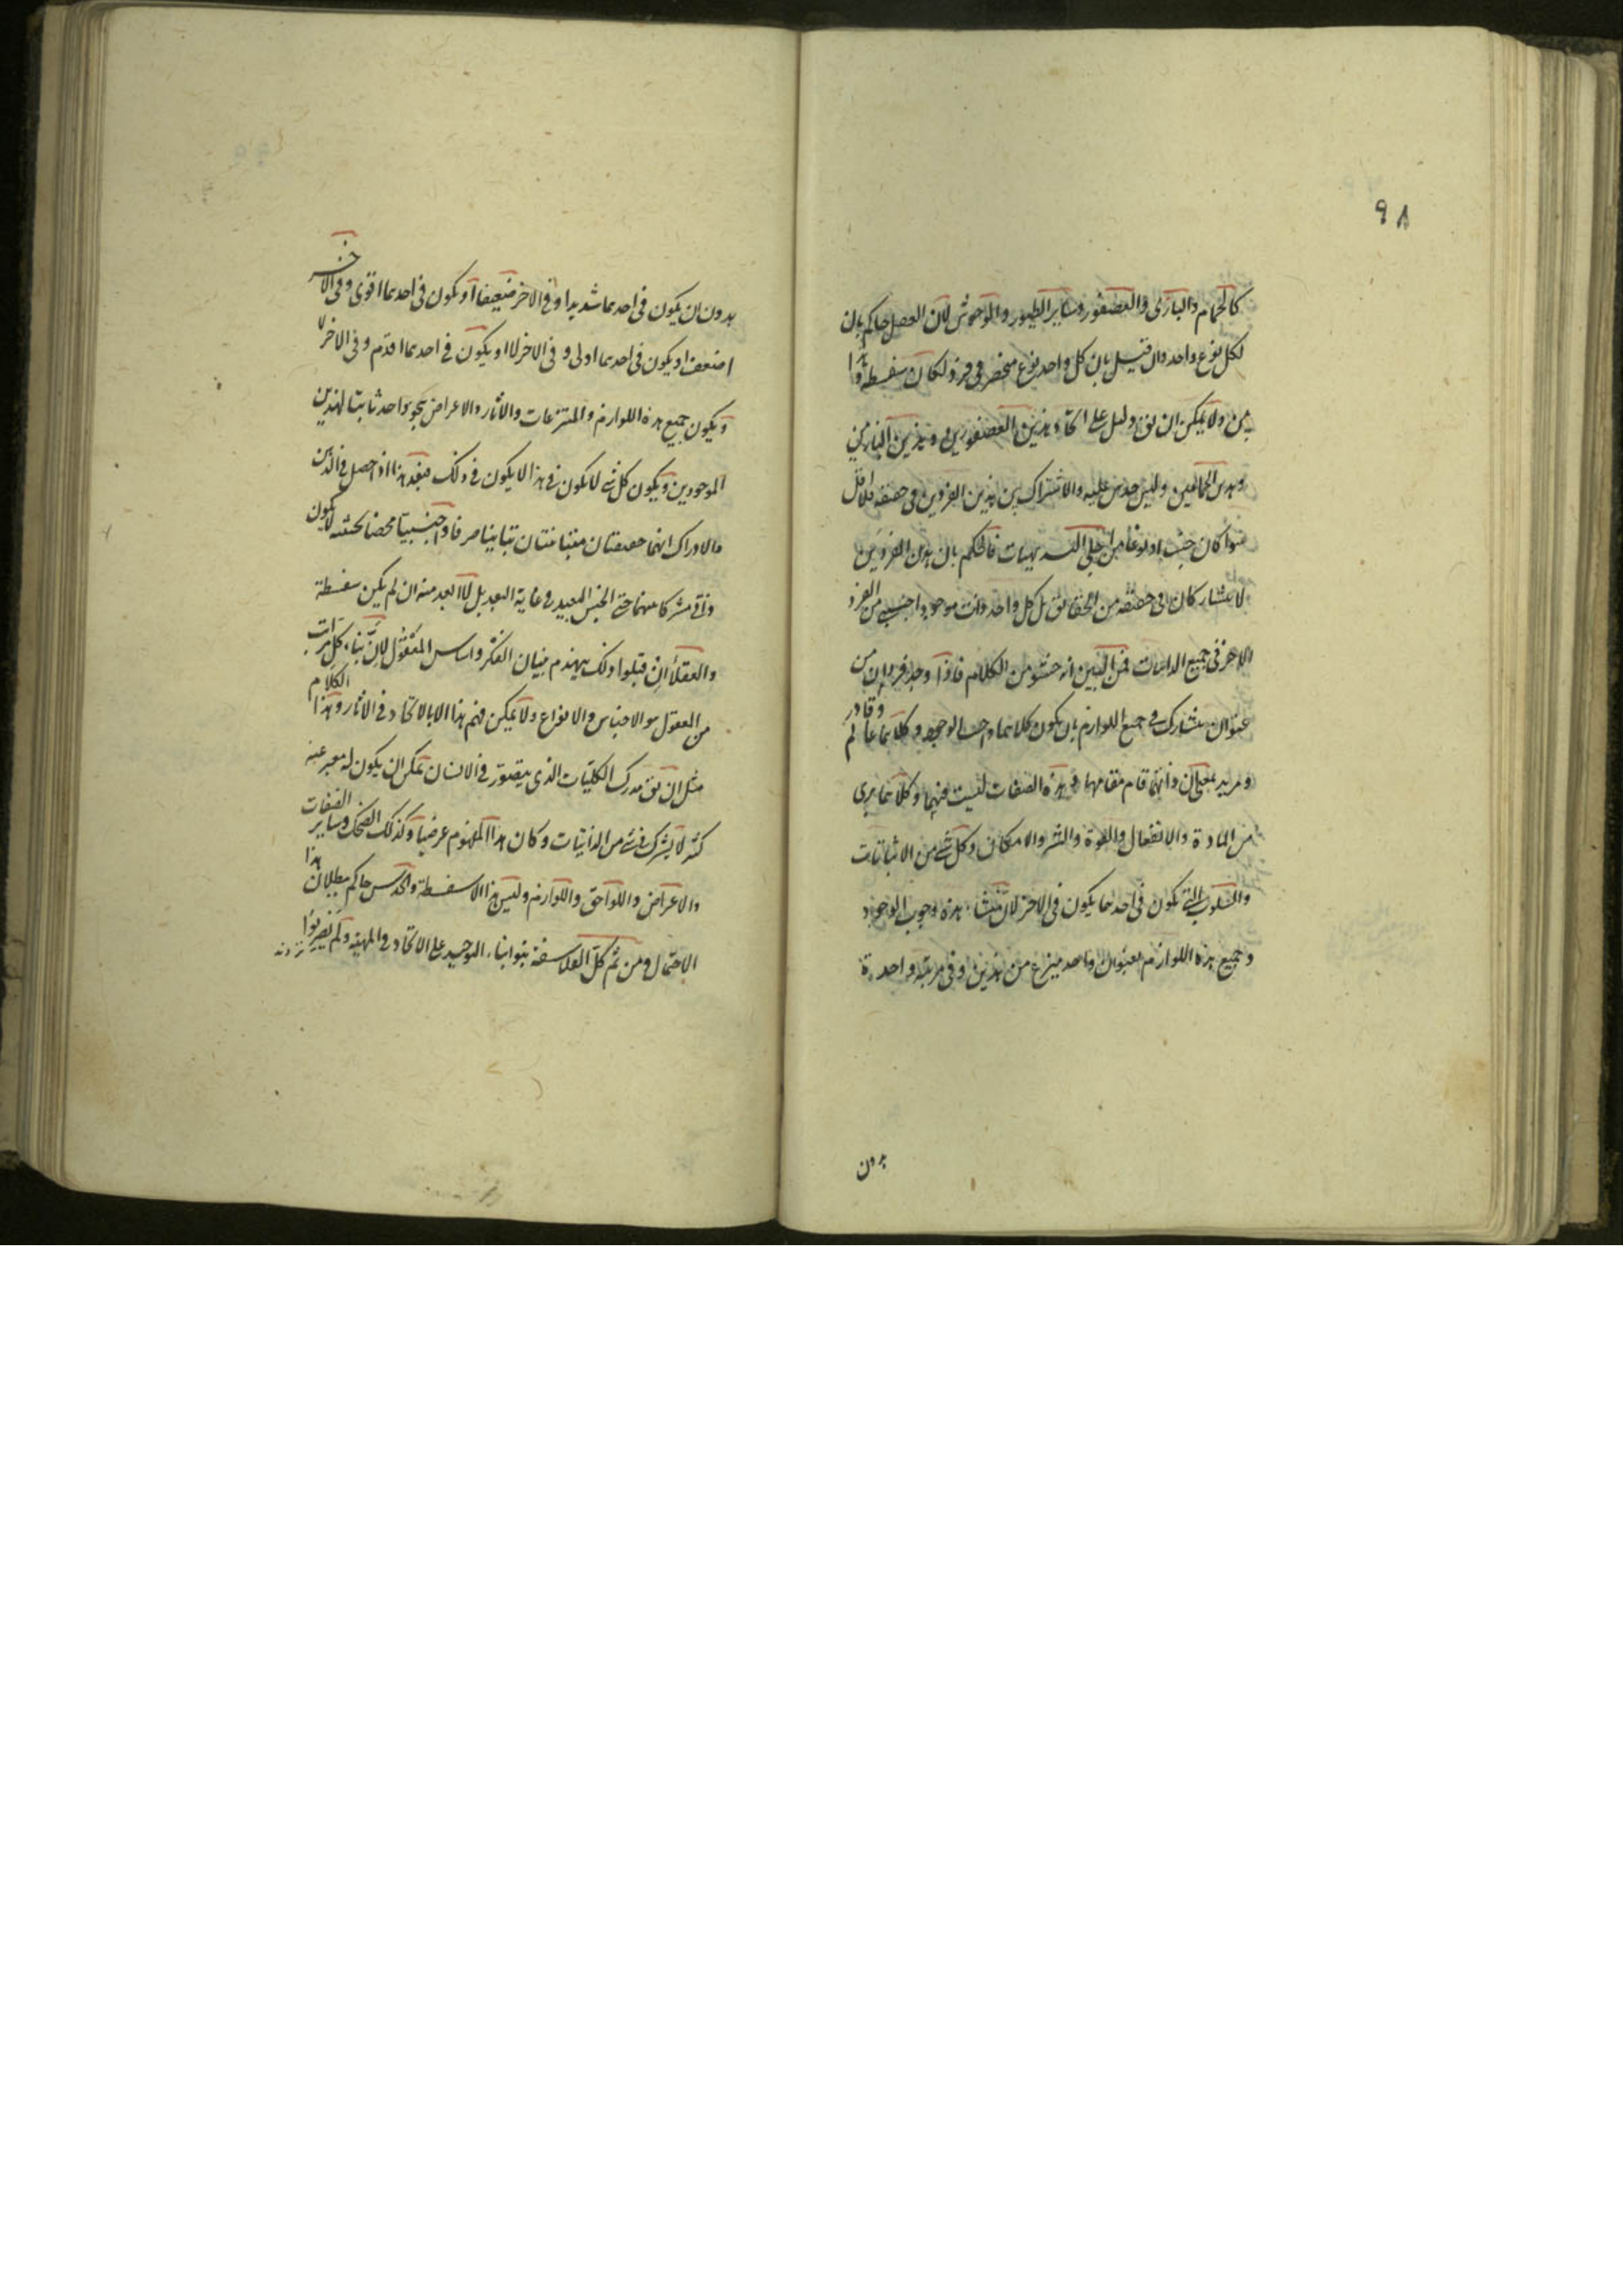 ٩٨
كالحمام والبازى والعصفور وساير الطيور والوحوش لان العقل حاكم بان
لكل نوع واحد وان قيل بان كل واحد نوع منحصر فى فرد لكان سفسطة وهذا
بين ولا يمكن ان يق دليل على اتحاد هذين العصفورين وهذين البازين
وهذين الحمامين وليس حدس عليه والاشتراك بين هذين الفردين فى حقيقة لا اقل
سواء كان جنسا او نوعا من اجلى البديهيات فالحكم بان هذين الفردين
لا يتشاركان فى حقيقة من الحقايق بل كل واحد ذات موجود اجنبى من الفرد
الاخر فى جميع الذاتيات فمن البين انه حشو من الكلام فاذا وجد فردان من
عنوان متشارك فى جميع اللوازم بان يكون كلاهما واجب الوجود وكلاهما عالم وقادر
ومريد بمعنى ان ذاتهما قام مقامها وهذه الصفات ليست فيهما وكلاهما برى
من المادة والانفعال والقوة والشر والامكان وكل شى من الاثباتيات
والسلوب التى يكون فى احدهما يكون فى الاخر لان منشاء هذه وجوب الوجود
وجميع هذه اللوازم بعنوان واحد ينتزع من هذين وفى مرتبة واحدة
بدون
بدون ان يكون فى احدهما شديدا وفى الاخر ضعيفا او يكون فى احدهما اقوى وفى الاخر
اضعف او يكون فى احدهما اولى وفى الاخر لا او يكون فى احدهما اقدم وفى الاخر لا
ويكون جميع هذه اللوازم والمنتزعات والاثار والاعراض بنحو واحد ثابتا لهذين
الموجودين ويكون كل شى لا يكون فى هذا لا يكون فى ذلك فبعد هذا اذا حصل فى الذهن
والادراك انهما حقيقتان متباينتان تباينا صرفا واجنبيتا محضا بحيث لا يكون
ذاتى مشتركا بينهما حتى الجنس البعيد فى غاية البعد بل لا ابعد منه ان لم يكن سفسطة
والعقلاء ان قبلوا ذلك ينهدم بنيان الفكر واساس العقول لان بناء كل مدركات
من العقول هو الاجناس والانواع ولا يمكن فهم هذا الا بالاتحاد فى الاثار وهذا الكلام
مثل ان يق مدرك الكليات الذى يتصور فى الانسان يمكن ان يكون له معبر عنه
كثير لا يشترك فى شى من الذاتيات وكان هذا المفهوم عرضيا وكذلك الضحك وساير الصفات
والاعراض واللواحق واللوازم وليس هذا الا سفسطة والحدس حاكم ببطلان هذا
الاحتمال ومن ثم كل الفلاسفة بنوا بناء التوحيد على الاتحاد فى المهية ولم